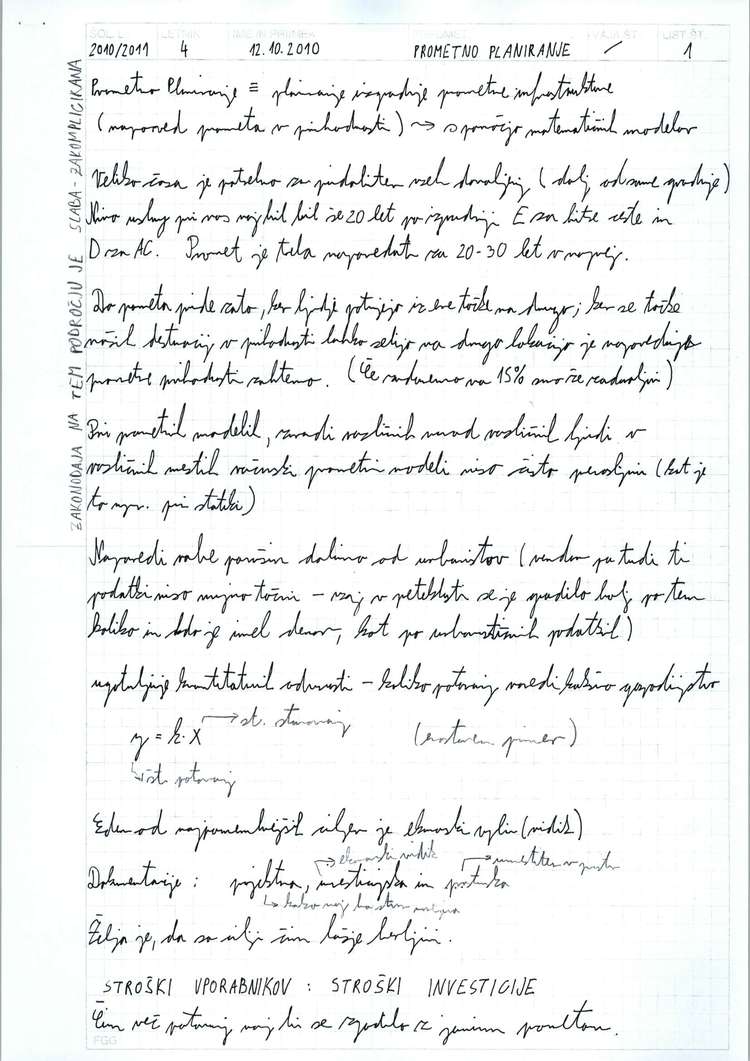 ŠOL. L. LETNIK IME IN PRIIMEK PREDMET VAJA ŠT. LIST ŠT.
2010/2011 4 12.10.2010 PROMETNO PLANIRANJE / 1
ZAKONODAJA NA TEM PODROČJU JE SLABA - ZAKOMPLICIRANA
Prometno Planiranje ≡ planiranje izgradnje prometne infrastrukture
(napoved prometa v prihodnosti) → s pomočjo matematičnih modelov
Veliko časa je potrebno za pridobitev vseh dovoljenj (dalj od same gradnje)
Nivo uslug pri nas naj bi bil še 20 let po izgradnji E za hitre ceste in
D za AC. Promet je treba napovedati za 20-30 let v naprej.
Do prometa pride zato, ker ljudje potujejo iz ene točke na drugo; ker se točke
naših destinacij v prihodnosti lahko selijo na drugo lokacijo je napovedovanje
prometne prihodnosti zahtevno. (Če zadanemo na 15% smo že zadovoljni)
Pri prometnih modelih, zaradi različnih navad različnih ljudi v
različnih mestih računski prometni modeli niso čisto prenosljivi (kot je
to npr. pri statiki)
Napovedi rabe površin dobimo od urbanistov (vendar pa tudi ti
podatki niso nujno točni - saj v preteklosti se je gradilo bolj po tem
koliko in kdo je imel denar, kot po urbanističnih podatkih)
ugotavljanje kvantitativnih odvisnosti - koliko potovanj naredi kakšno gospodinjstvo
y = k · x → št. stanovanj (enostaven primer)
↳ št. potovanj
Eden od najpomembnejših ciljev je ekonomski vpliv (vidik)
→ ekonomski vidik → umestitev v prostor
Dokumentacije: projektna, investicijska in prostorska
↳ kako naj bo stvar
Želja je, da so cilji čim lažje berljivi.
STROŠKI UPORABNIKOV : STROŠKI INVESTICIJE
Čim več potovanj naj bi se zgodilo z javnim prevozom.
FGG